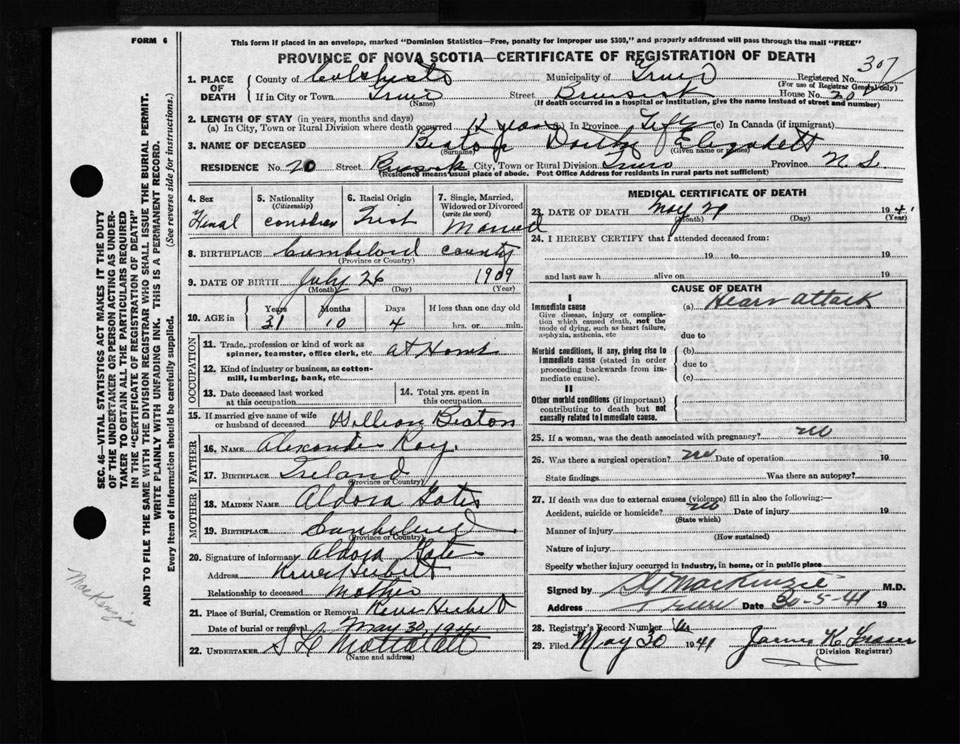 FORM 6
This form if placed in an envelope, marked "Dominion Statistics—Free, penalty for improper use $300," and properly addressed will pass through the mail "FREE"
PROVINCE OF NOVA SCOTIA—CERTIFICATE OF REGISTRATION OF DEATH
307
1. PLACE OF DEATH
County of Colchester Municipality of Truro Registered No.
(For use of Registrar General only)
If in City or Town Truro Street Brunswick House No. 20
(Name) (If death occurred in a hospital or institution, give the name instead of street and number)
2. LENGTH OF STAY (in years, months and days)
(a) In City, Town or Rural Division where death occurred 12 years (b) In Province Life (c) In Canada (if immigrant)
3. NAME OF DECEASED Beaton Elizabeth
(Surname)
RESIDENCE No. 20 Street City, Town or Rural Division Truro Province N.S.
(Residence means usual place of abode. Post Office Address for residents in rural parts not sufficient)
SEC. 46—VITAL STATISTICS ACT MAKES IT THE DUTY
OF THE UNDERTAKER OR PERSON ACTING AS UNDER-
TAKER TO OBTAIN ALL THE PARTICULARS REQUIRED
IN THE "CERTIFICATE OF REGISTRATION OF DEATH"
AND TO FILE THE SAME WITH THE DIVISION REGISTRAR WHO SHALL ISSUE THE BURIAL PERMIT.
WRITE PLAINLY WITH UNFADING INK. THIS IS A PERMANENT RECORD.
Every item of information should be carefully supplied. (See reverse side for instructions.)
MacKenzie
4. Sex
5. Nationality (Citizenship)
6. Racial Origin Irish
7. Single, Married, Widowed or Divorced (write the word) Married
8. BIRTHPLACE Cumberland County
(Province or Country)
9. DATE OF BIRTH July 26 1909
(Month) (Day) (Year)
10. AGE in Years Months Days If less than one day old
31 10 4 hrs. or min.
OCCUPATION
11. Trade, profession or kind of work as spinner, teamster, office clerk, etc. at Home
12. Kind of industry or business, as cotton-mill, lumbering, bank, etc.
13. Date deceased last worked at this occupation
14. Total yrs. spent in this occupation
15. If married give name of wife or husband of deceased William Beaton
FATHER
16. NAME Alexander Roy
17. BIRTHPLACE Ireland
(Province or Country)
MOTHER
18. MAIDEN NAME Aldora Gates
19. BIRTHPLACE Cumberland
(Province or Country)
20. Signature of informant Aldora Gates
Address River Hebert
Relationship to deceased Mother
21. Place of Burial, Cremation or Removal River Hebert
Date of burial or removal May 30, 1941
22. UNDERTAKER
(Name and address)
MEDICAL CERTIFICATE OF DEATH
23. DATE OF DEATH May 29 1941
(Month) (Day)
24. I HEREBY CERTIFY that I attended deceased from:
19 to 19
and last saw h alive on 19
CAUSE OF DEATH
I
Immediate cause (a) Heart attack
Give disease, injury or complication which caused death, not the mode of dying, such as heart failure, asphyxia, asthenia, etc
due to
Morbid conditions, if any, giving rise to immediate cause (stated in order proceeding backwards from immediate cause).
(b)
due to
(c)
II
Other morbid conditions (if important) contributing to death but not causally related to immediate cause.
25. If a woman, was the death associated with pregnancy? no
26. Was there a surgical operation? no Date of operation 19
State findings Was there an autopsy?
27. If death was due to external causes (violence) fill in also the following:—
Accident, suicide or homicide? no Date of injury 19
(State which)
Manner of injury
(How sustained)
Nature of injury
Specify whether injury occurred in industry, in home, or in public place
Signed by MacKenzie M.D.
Address Truro Date 30-5-41 19
28. Registrar's Record Number
29. Filed May 30 1941 James K. Fraser
(Division Registrar)